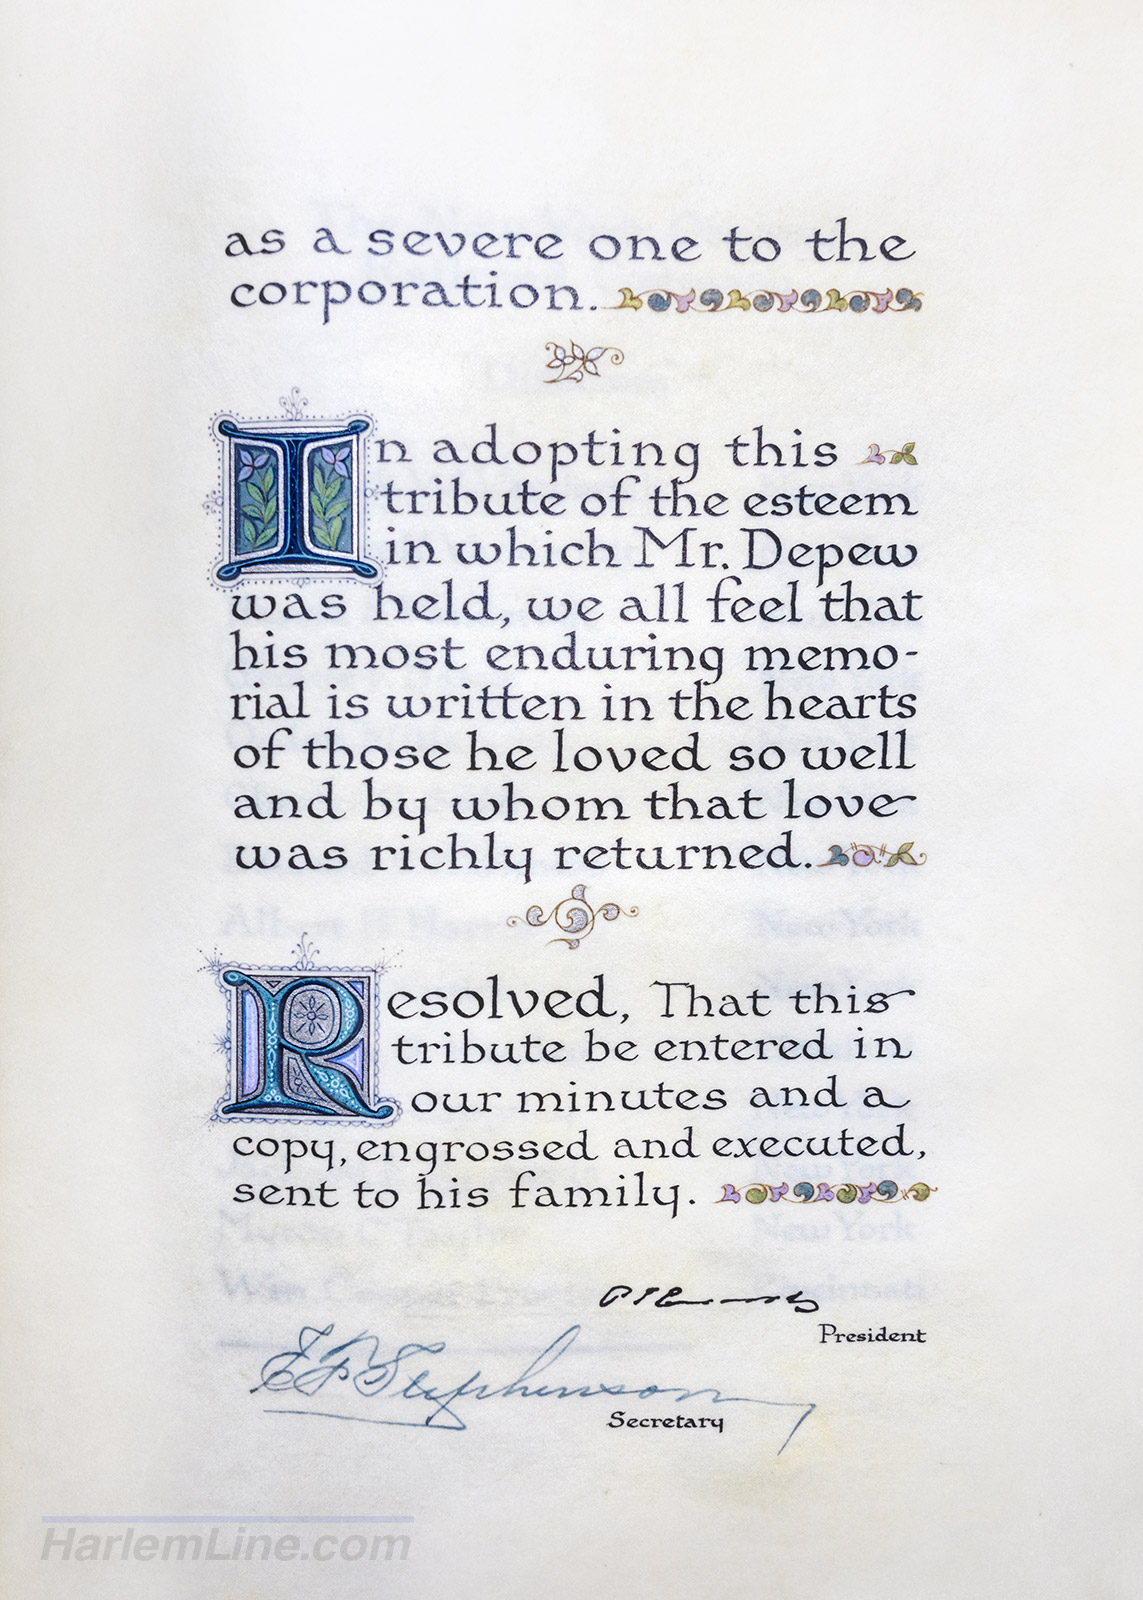 as a severe one to the
corporation.
In adopting this
tribute of the esteem
in which Mr. Depew
was held, we all feel that
his most enduring memo-
rial is written in the hearts
of those he loved so well
and by whom that love
was richly returned.
Resolved, That this
tribute be entered in
our minutes and a
copy, engrossed and executed,
sent to his family.
President
E F Stephenson
Secretary
HarlemLine.com